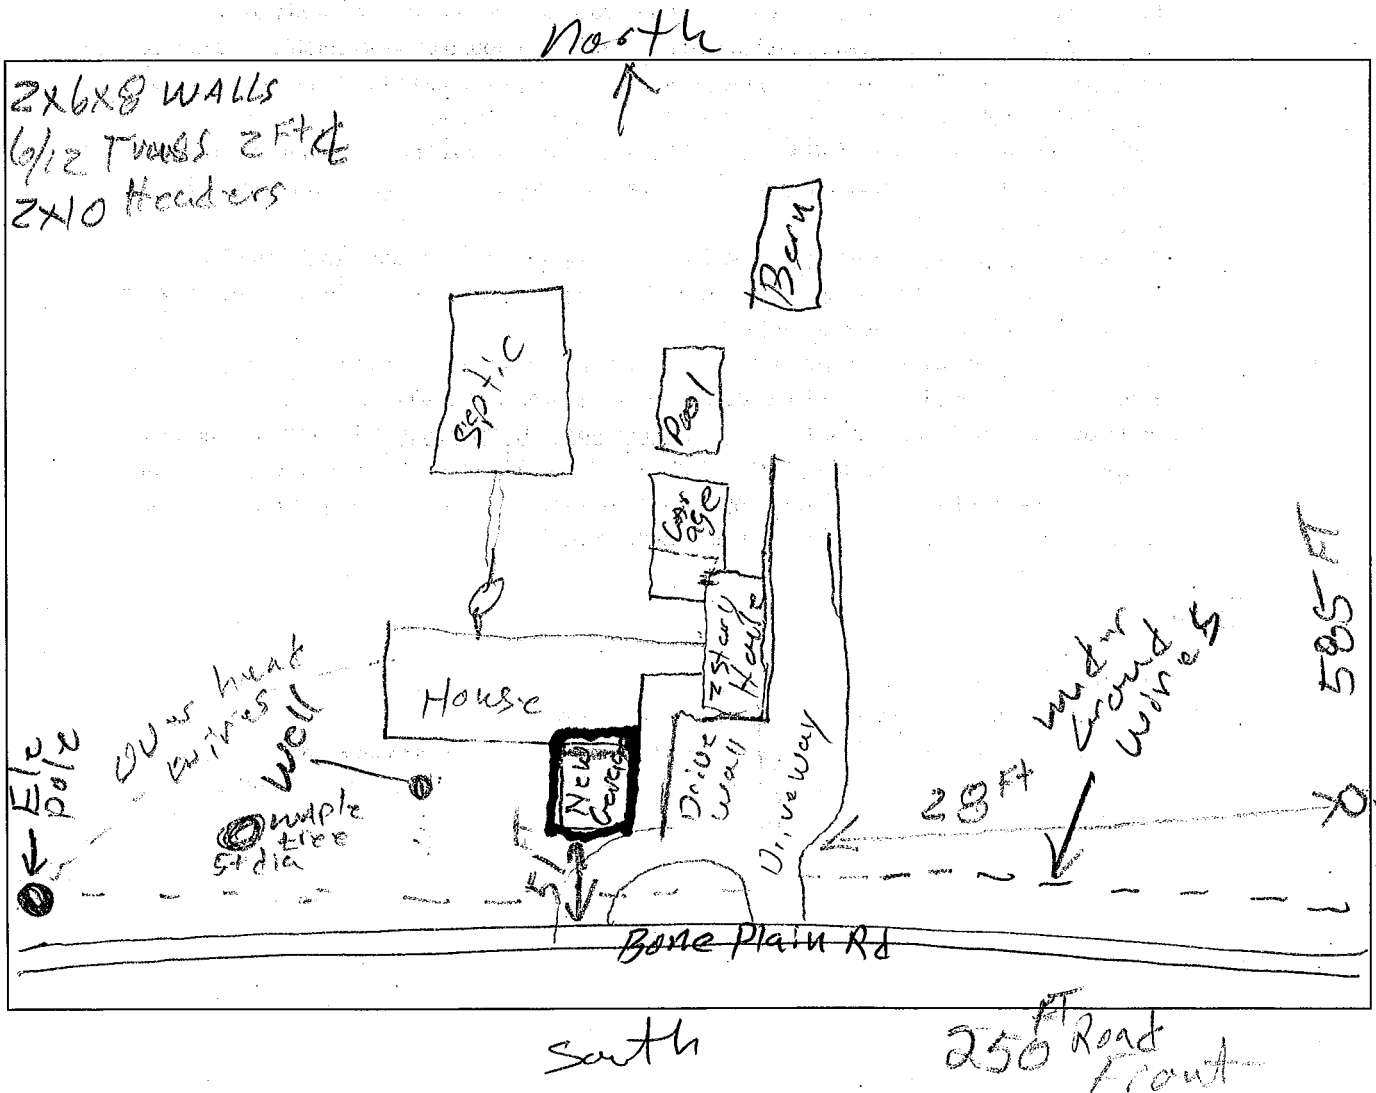 North
2x6x8 WALLS
6/12 Truss 2 Ft
2x10 Headers
Barn
Septic
Pool
age
2 Story
House
House
Over head
wires
Well
Ele
pole
maple
tree
5t dia
New
Drive
Wall
Driveway
28 FT
under
Ground
Wires
585 FT
Bone Plain Rd
South
250 FT Road
Front